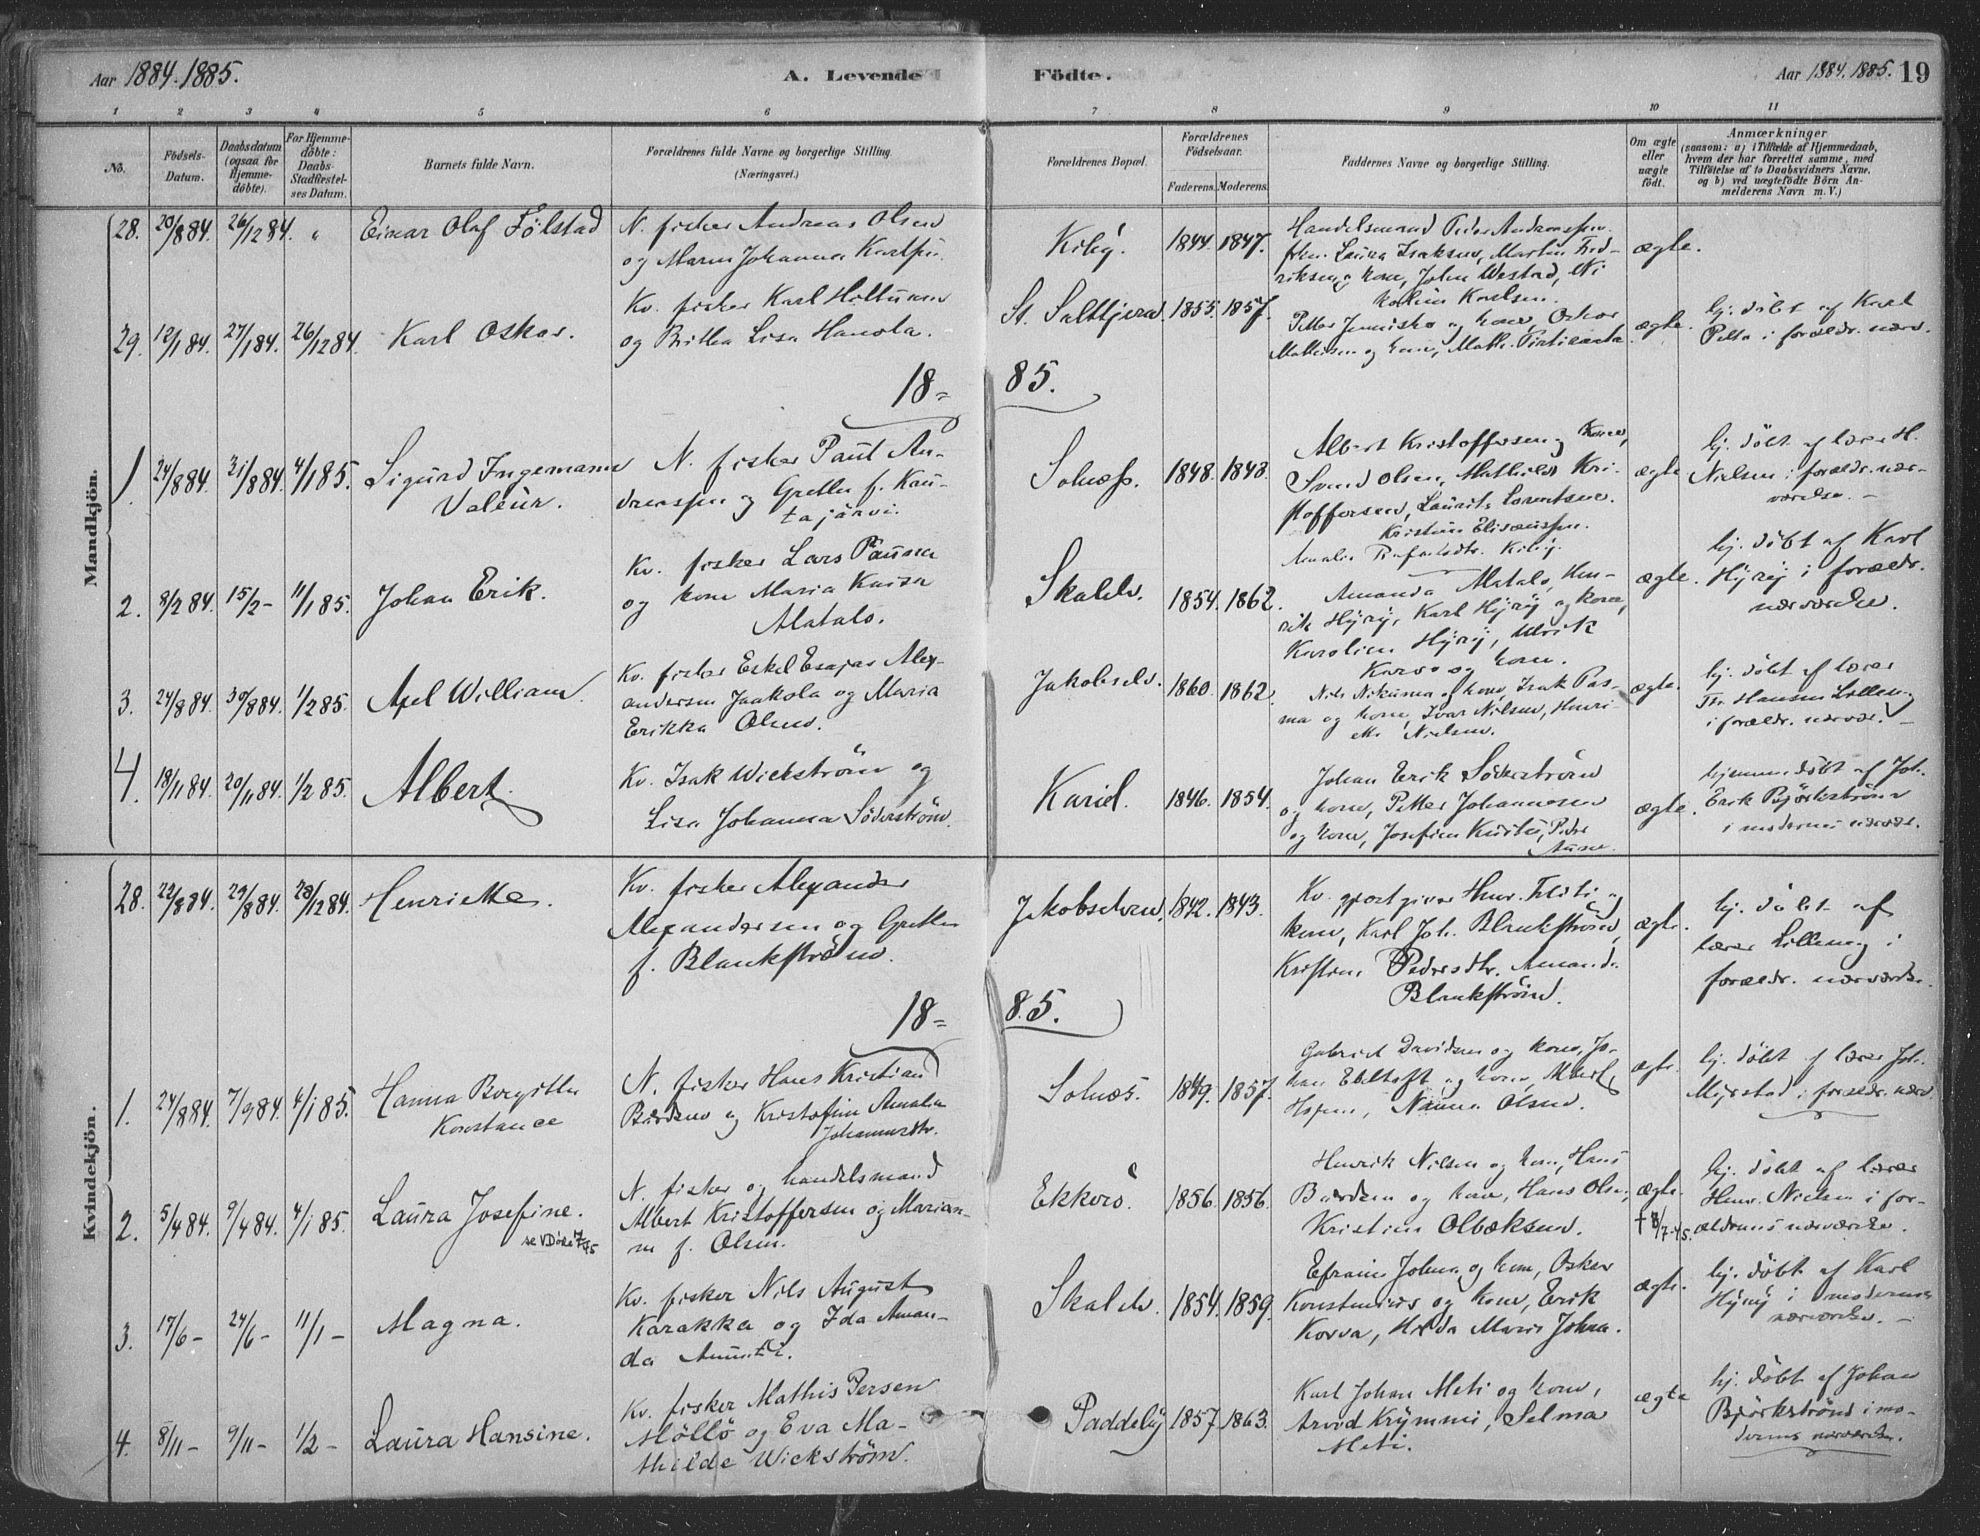 Aar 1884. 1885.
A. Levende Fødte.
Aar 1884. 1885. 19
1 2 3 4 5 6 7 8 9 10 11
No.
Fødsels-Datum.
Daabsdatum (ogsaa for Hjemmedøbte).
For Hjemmedøbte: Daabs-Stadfæstelses Datum.
Barnets fulde Navn.
Forældrenes fulde Navne og borgerlige Stilling. (Næringsvei.)
Forældrenes Bopæl.
Forældrenes Fødselsaar.
Faderens. Moderens.
Faddernes Navne og borgerlige Stilling.
Om ægte eller uægte født.
Anmærkninger
(saasom: a) i Tilfælde af Hjemmedaab,
hvem der har forrettet samme, med
Tilføielse af to Daabsvidners Navne,
og b) ved uægtefødte Børn Anmelderens Navn m. V.)
Mandkjøn.
28. 20/8 84. 26/12 84. " Einar Olaf Følstad
N. fisker Andreas Olsen
og Maren Johanna
Kiby. 1844. 1847.
Handelsmand Peder Andreassen
Laura Isaksen, Martin Fred-
riksen og kone, John Westad,
Karlsen.
ægte.
29. 12/1 84. 27/1 84. 26/12 84. Karl Oskar.
Kv. fisker Karl Heltunen
og Britha Lisa Hanola.
St. Saltjern. 1855. 1857.
Petter og kone, Oskar
Mathisen og kone, Math.
ægte.
hj. døbt af Karl
Pelto i forældr. nærv.
18= 85.
1. 24/8 84. 31/8 84. 4/1 85. Sigurd Ingemann
Valeur.
N. fisker Paul An-
dreassen og Grethe f. Kau-
tajärvi.
Solnæss. 1848. 1848.
Albert Kristoffersen og kone,
Svend Olsen, Mathilde Kri-
stoffersen, Laurits Lorentsen.
Kristine Elisæussen.
Amalie Kiby.
ægte
hj. døbt af lærer H.
Nielsen i forældr. nær-
værelse. –
2. 8/2 84. 15/2 – 11/1 85. Johan Erik.
Kv. fisker Lars Pauna
og kone Maria Kaisa
Alatalo.
Skalelv. 1854. 1862.
Amanda Matalo, Hen-
rik Hyry, Karl Hyry og kone,
Karoline Hyry, Ulrik
Korva og kone.
ægte.
hj. døbt af Karl
Hyry i forældr.
nærværelse.
3. 24/8 84. 30/8 84. 1/2 85. Axel William
Kv. fisker Eskel Esajas Alex-
andersen Jaakola og Maria
Erikka Olsen.
Jakobselv. 1860. 1862.
Nils og kone, Isak Pas-
ma og kone, Ivar Nilsen, Henri-
ette Nielsen.
ægte.
hj. døbt af lærer
Th. Hansen Lilleng
i forældr. nærvær. –
4. 18/11 84. 20/11 84. 1/2 85. Albert.
Kv. Isak Wickström og
Lisa Johanna Söderström.
Kariel. 1846. 1854.
Johan Erik Söderström
og kone, Petter Johannesen
og kone, Josefine Peder
ægte.
hjemmedøbt af Joh.
Erik Björkström
i moderens nærvær.
Kvindekjøn.
28. 22/8 84. 29/8 84. 28/12 84. Henriette.
Kv. fisker Alexander
Alexandersen og Grethe
f. Blankström.
Jakobselven. 1842. 1843.
Kv. gjæstgiver Henr. og
kone, Karl Joh. Blankström,
Pedersdtr. Amanda
Blankström.
ægte.
hj. døbt af
lærer Lilleng i
forældr. nærværelse.
18= 85.
1. 24/8 84. 7/9 84. 4/1 85. Hanna Birgitte
Konstance
N. fisker Hans Kristian
Bærdsen og Kristofine Amalie
Johannesdtr.
Solnæs. 1849. 1857.
Gabriel Davidsen og kone, Jo-
han Ebeltoft og kone,
Olsen.
ægte.
hj. døbt af lærer Joh.
i forældr. nærv.
2. 5/4 84. 9/4 84. 4/1 85. Laura Josefine.
N. fisker og handelsmand
Albert Kristoffersen og Marian-
ne f. Olsen.
Ekkerö. 1856. 1856.
Henrik Nilsen og kone, Hans
Bærdsen og kone, Hans Olsen,
Kristine Olbæksen.
ægte.
hj. døbt af lærer
Henr. Nielsen i for-
ældrenes nærværelse.
3. 17/6 – 24/6 – 11/1 – Magna.
Kv. fisker Nils August
Karakka og Ida Aman-
da
Skalelv. 1854. 1859.
Efraim Johna og kone, Oskar
Konstenius og kone, Erik
Korva, Hilda Maria Johna.
ægte.
hj. døbt af Karl
Hyry i moderens
nærværelse. –
4. 8/11 – 9/11 – 1/2 – Laura Hansine.
Kv. fisker Mathis Persen
Möllö og Eva Ma-
thilde Wickström.
Paddeby 1857. 1863.
Karl Johan Meti og kone,
Arvid Krymmi, Selma
Meti.
ægte
hj. døbt af Johan
Björkström i mo-
derens nærværelse.